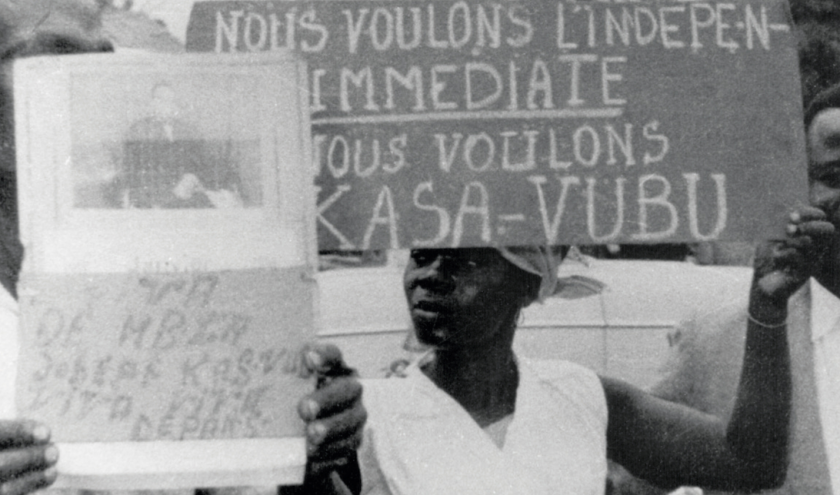 NOUS VOULONS L'INDEPEN-
IMMEDIATE
NOUS VOULONS
KASA-VUBU
DE
JOSEPH KASAVUBU
VIVA
DEPANS